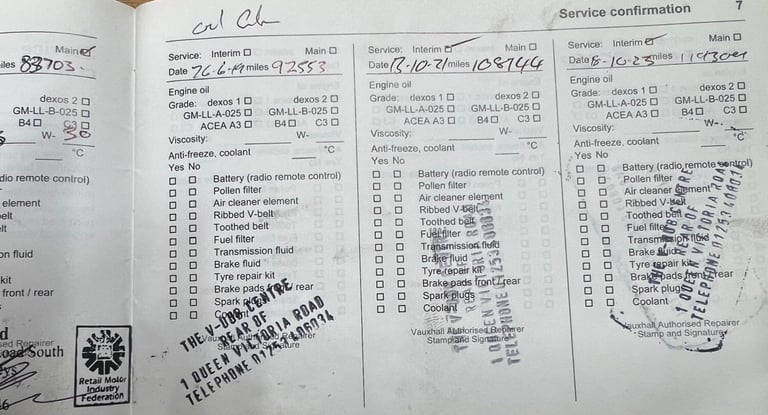 Service confirmation 7
Main
miles 88703
dexos 2
GM-LL-B-025
B4 C3
W- 30
°C
dio remote control)
r
element
belt
lt
on fluid
kit
front / rear
d
sed Repairer
oad South
Retail Motor
Industry
Federation
Service: Interim Main
Date 26-6-19 miles 92553
Engine oil
Grade: dexos 1 dexos 2
GM-LL-A-025 GM-LL-B-025
ACEA A3 B4 C3
Viscosity: W-
Anti-freeze, coolant °C
Yes No
Battery (radio remote control)
Pollen filter
Air cleaner element
Ribbed V-belt
Toothed belt
Fuel filter
Transmission fluid
Brake fluid
Tyre repair kit
Brake pads front / rear
Spark plugs
Coolant
Vauxhall Authorised Repairer
Stamp and Signature
THE V-DUB CENTRE
REAR OF
1 QUEEN VICTORIA ROAD
TELEPHONE
Service: Interim Main
Date 13-10-21 miles 108744
Engine oil
Grade: dexos 1 dexos 2
GM-LL-A-025 GM-LL-B-025
ACEA A3 B4 C3
Viscosity: W-
Anti-freeze, coolant °C
Yes No
Battery (radio remote control)
Pollen filter
Air cleaner element
Ribbed V-belt
Toothed belt
Fuel filter
Transmission fluid
Brake fluid
Tyre repair kit
Brake pads front / rear
Spark plugs
Coolant
Vauxhall Authorised Repairer
Stamp and Signature
1 QUEEN
TELEPHONE
Service: Interim Main
Date 18-10-23 miles
Engine oil
Grade: dexos 1 dexos 2
GM-LL-A-025 GM-LL-B-025
ACEA A3 B4 C3
Viscosity: W-
Anti-freeze, coolant °C
Yes No
Battery (radio remote control)
Pollen filter
Air cleaner element
Ribbed V-belt
Toothed belt
Fuel filter
Transmission fluid
Brake fluid
Tyre repair kit
Brake pads front / rear
Spark plugs
Coolant
Vauxhall Authorised Repairer
Stamp and Signature
REAR OF
1 QUEEN VICTORIA ROAD
TELEPHONE